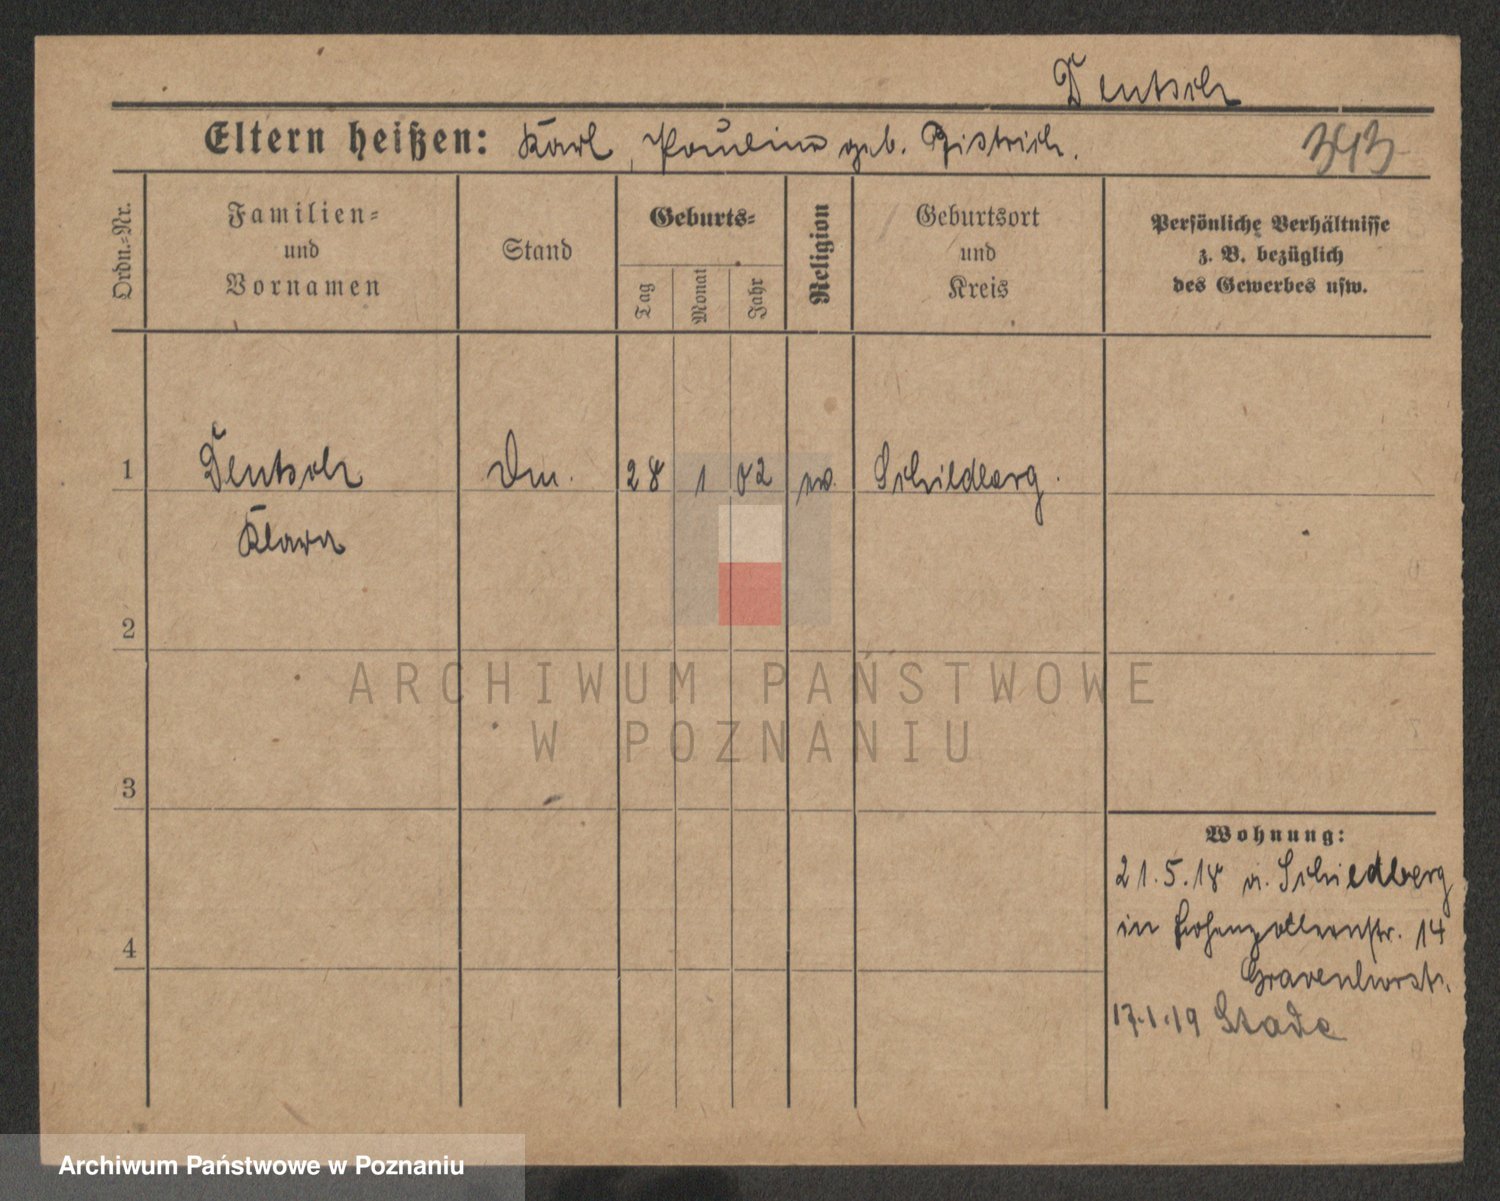 Deutsch
Eltern heißen: Karl, Pauline geb. Bistrich.
343
Ordn.-Nr.
Familien-
und
Vornamen
Stand
Geburts-
Tag
Monat
Jahr
Religion
Geburtsort
und
Kreis
Persönliche Verhältnisse
z. B. bezüglich
des Gewerbes usw.
1 Deutsch 28 1 02 ev. Schildberg.
Klara
2
3
4
Wohnung:
21.5.18 v. Schildberg
in Hohenzollernstr. 14
Gravenhorst.
17.1.19 Stade
ARCHIWUM PAŃSTWOWE
W POZNANIU
Archiwum Państwowe w Poznaniu